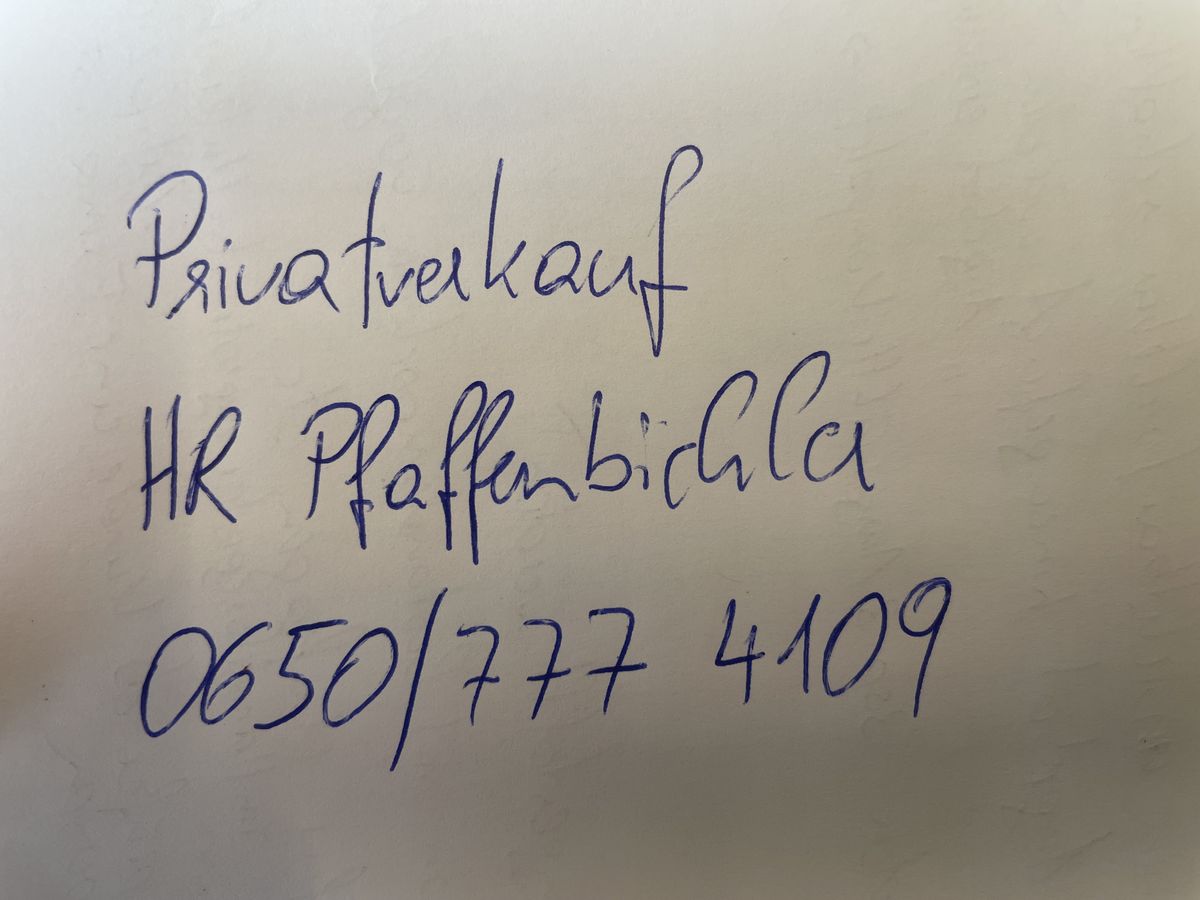 Privatverkauf
HR Pfaffenbichler
0650/777 4109